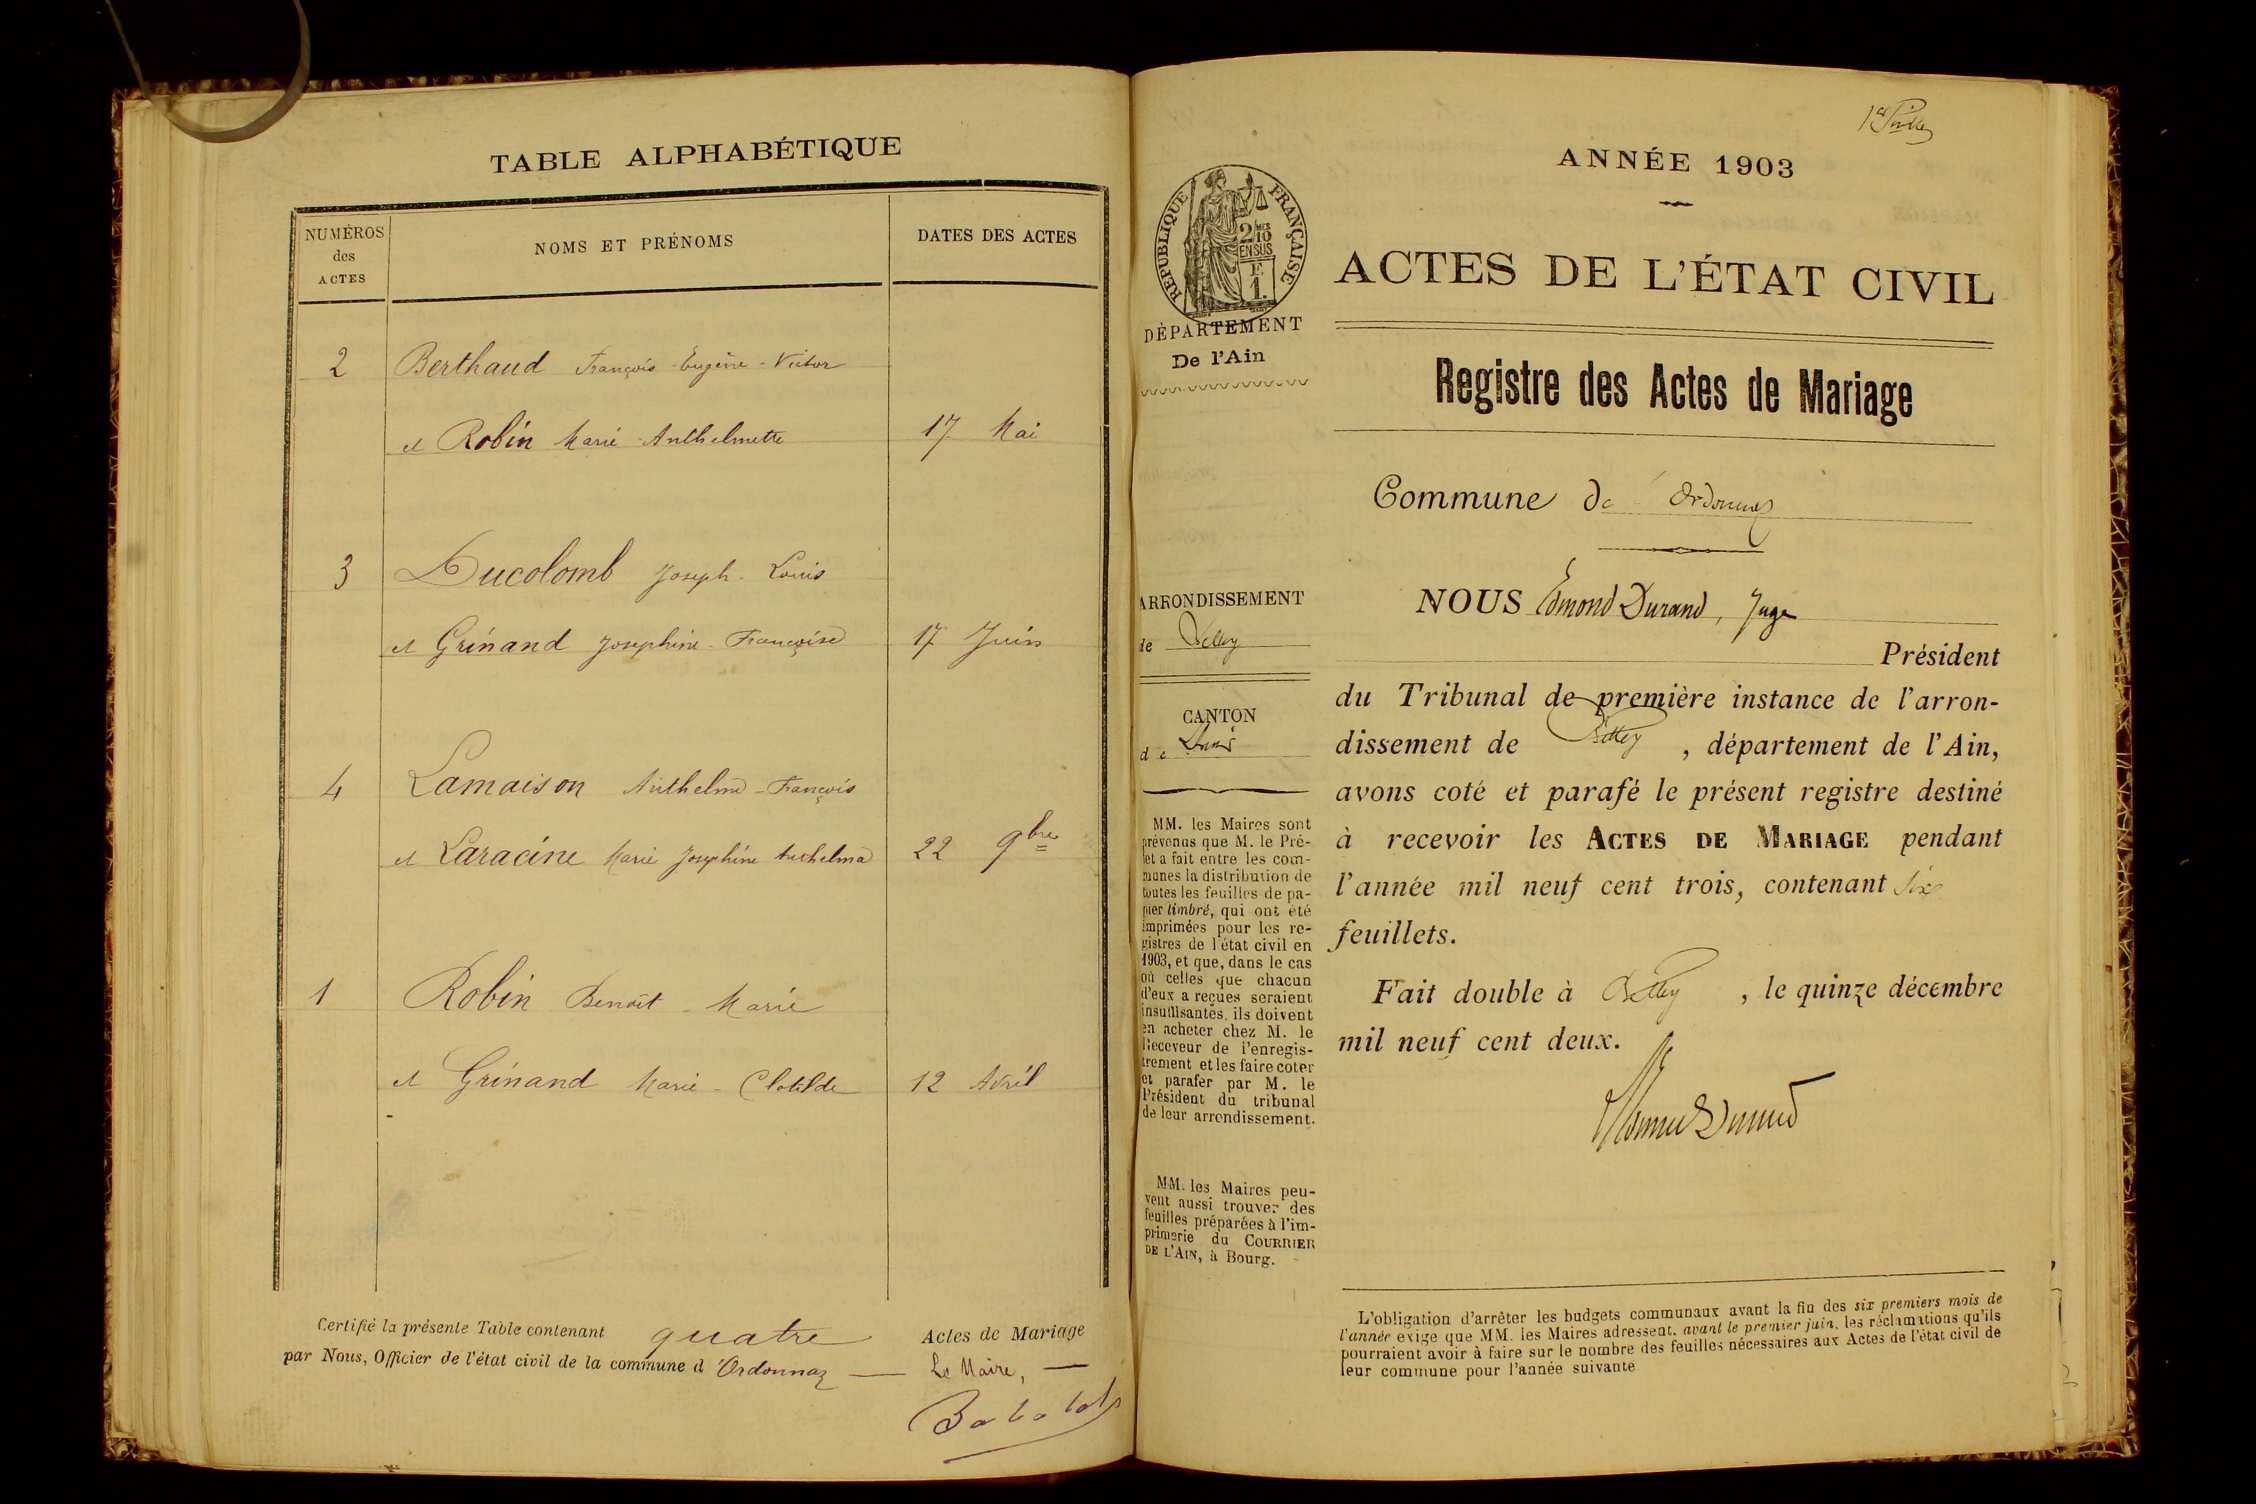 TABLE ALPHABÉTIQUE
NUMÉROS
des
ACTES
NOMS ET PRÉNOMS
DATES DES ACTES
2 Berthaud François-Eugène-Victor
et Robin Marie-Anthelmette 17 Mai
3 Ducolomb Joseph-Louis
et Grinand Joséphine-Françoise 17 Juin
4 Lamaison Anthelme-François
et Laracine Marie Joséphine Anthelma 22 9bre
1 Robin Benoît-Marie
et Grinand Marie-Clotilde 12 Avril
Certifié la présente Table contenant quatre Actes de Mariage
par Nous, Officier de l'état civil de la commune d'Ordonnaz — Le Maire, —
1er
ANNÉE 1903
RÉPUBLIQUE FRANÇAISE
2 MES
10
EN SUS
F.
1.
DÉPARTEMENT
De l'Ain
ACTES DE L'ÉTAT CIVIL
Registre des Actes de Mariage
Commune de Ordonnaz
ARRONDISSEMENT
de Belley
CANTON
de
MM. les Maires sont
prévenus que M. le Pré-
fet a fait entre les com-
munes la distribution de
toutes les feuilles de pa-
pier timbré, qui ont été
imprimées pour les re-
gistres de l'état civil en
1903, et que, dans le cas
où celles que chacun
d'eux a reçues seraient
insuffisantes, ils doivent
en acheter chez M. le
Receveur de l'enregis-
trement et les faire coter
et parafer par M. le
Président du tribunal
de leur arrondissement.
MM. les Maires peu-
vent aussi trouver des
feuilles préparées à l'im-
primerie du COURRIER
DE L'AIN, à Bourg.
NOUS Edmond Durand, Juge
Président
du Tribunal de première instance de l'arron-
dissement de Belley, département de l'Ain,
avons coté et parafé le présent registre destiné
à recevoir les ACTES DE MARIAGE pendant
l'année mil neuf cent trois, contenant six
feuillets.
Fait double à Belley, le quinze décembre
mil neuf cent deux.
L'obligation d'arrêter les budgets communaux avant la fin des six premiers mois de
l'année exige que MM. les Maires adressent, avant le premier juin, les réclamations qu'ils
pourraient avoir à faire sur le nombre des feuilles nécessaires aux Actes de l'état civil de
leur commune pour l'année suivante